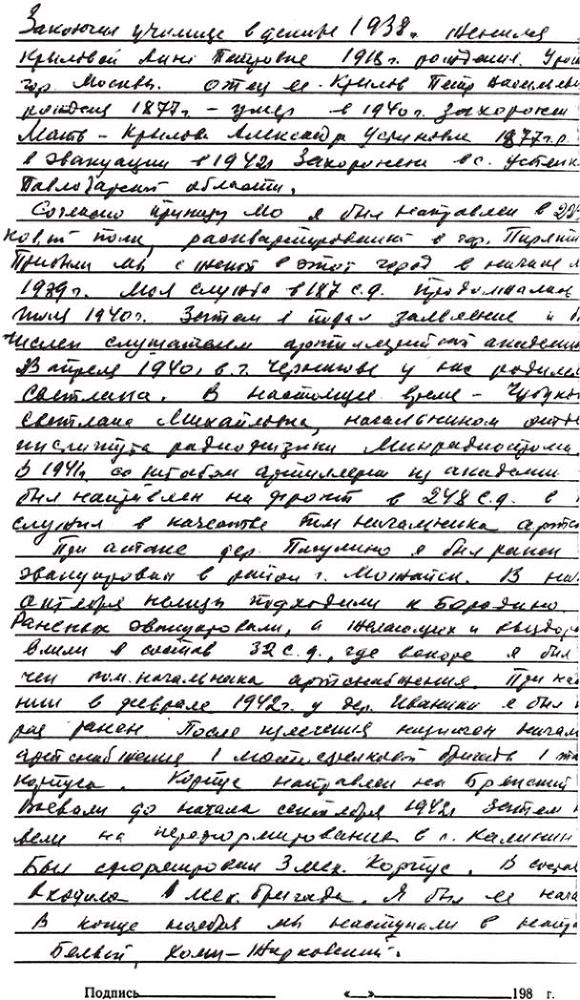 Закончил училище в декабре 1938г. Женился
Крыловой Анне Петровне 1918г. рождения. Урож
гор. Москвы. Отец ее - Крылов Петр Васильев
рождения 1877г - умер в 1940г. Захоронен
Мать - Крылова Александра 1877г.р.
в эвакуации в 1942г Захоронена в с.
Павлодарской области.
Согласно приказу МО я был направлен в
полк, расквартированный в гор. Пирятин
Прибыли мы с женой в этот город в начале
1939г. Моя служба в 187 с.д. продолжалась
1940г. Затем я подал заявление и
числен слушателем артиллерийской академии
В апреле 1940г. в г. Чернигове у нас родилась
Светлана. В настоящее время -
Светлана Михайловна, начальником отде
института радиофизики Минрадиопрома.
В 1941г. со штабом артиллерии из академии
был направлен на фронт в 248 с.д. в
служил в качестве пом. начальника артсн
При атаке дер. я был ранен
эвакуирован в район г. Можайск. В на
октября немцы подходили к Бородино.
Раненых эвакуировали, а желающих и выздор
влили в состав 32 с.д., где вскоре я был
чен пом. начальника артснабжения. При на
нии в феврале 1942г. у дер. Иваники я был
раз ранен. После излечения назначен начал
артснабжения 1 мотострелковой бригады 1 та
корпуса. Корпус направлен на Брянский
Воевали до начала сентября 1942г Затем
вели на переформирование в г. Калинин
Был сформирован 3 мех. корпус. В состав
входила 1 мех. бригада. Я был ее нача
В конце ноября мы наступали в напр
Белый, Холм-Жирковский.
Подпись «__» 198 г.